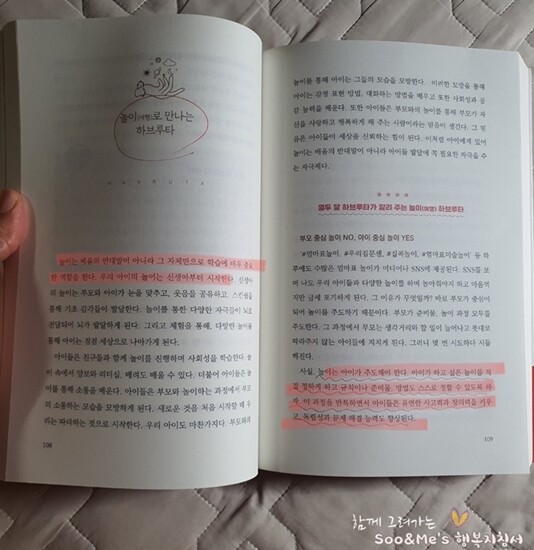 놀이(체험)로 만나는
하브루타
HAVRUTA
놀이는 배움의 반대말이 아니라 그 자체만으로 학습에 매우 중요
한 역할을 한다. 우리 아이의 놀이는 신생아부터 시작한다. 신생아
의 놀이는 부모와 아이가 눈을 맞추고, 웃음을 공유하고, 스킨십을
통해 기초 감각들이 발달한다. 놀이를 통한 다양한 자극들이 뇌로
전달되어 뇌가 발달하게 된다. 그리고 체험을 통해, 다양한 놀이를
통해 아이는 점점 세상으로 나아가게 된다.
아이들은 친구들과 함께 놀이를 진행하며 사회성을 학습한다. 놀
이 속에서 양보와 리더십, 배려도 배울 수 있다. 더불어 아이들은 놀
이를 통해 소통을 배운다. 아이들은 부모와 놀이하는 과정에서 부모
의 소통하는 모습을 모방하게 된다. 새로운 것을 처음 시작할 때 우
리는 따라하는 것으로 시작한다. 우리 아이도 마찬가지다. 부모와의
108
놀이를 통해 아이는 그들의 모습을 모방한다. 이러한 모방을 통해
아이는 감정 표현 방법, 대화하는 방법을 배우고 또한 사회성과 공
감 능력을 깨운다. 또한 아이들은 부모와의 놀이를 통해 부모가 자
신을 사랑하고 행복하게 해 주는 사람이라는 믿음이 생긴다. 그 믿
음은 아이들이 세상을 신뢰하는 힘이 된다. 이처럼 아이에게 있어
놀이는 배움의 반대말이 아니라 아이들 발달에 꼭 필요한 자극을 주
는 자극제다.
열두 달 하브루타가 알려 주는 놀이(체험) 하브루타
부모 중심 놀이 NO, 아이 중심 놀이 YES
'#엄마표놀이, #우리집문센, #집콕놀이, #엄마표미술놀이' 등 하
루에도 수많은 엄마표 놀이가 미디어나 SNS에 제공된다. SNS를 보
며 나도 우리 아이들과 다양한 놀이를 하며 놀아줘야지 하고 마음먹
지만 금세 포기하게 된다. 그 이유가 무엇일까? 바로 부모가 중심이
되어 놀이를 주도하기 때문이다. 부모가 준비물, 놀이 과정 모두를
주도한다. 그 과정에서 부모는 생각거리와 할 일이 늘어나고 뜻대로
따라주지 않는 아이들에 지치게 된다. 그러니 몇 번 시도하다 시들
해진다.
사실, 놀이는 아이가 주도해야 한다. 아이가 하고 싶은 놀이를 직
접 정하게 하고 규칙이나 준비물, 방법도 스스로 정할 수 있도록 하
라. 이 과정을 반복하면서 아이들은 유연한 사고력과 창의력을 키우
고, 독립성과 문제 해결 능력도 향상된다.
109
함께 그려가는
Soo&Me's 행복지침서